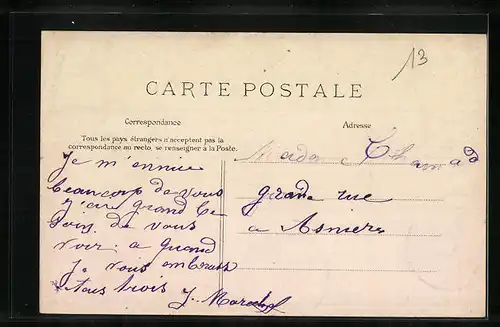 13
CARTE POSTALE
Correspondance
Tous les pays étrangers n'acceptent pas la
correspondance au recto, se renseigner à la Poste.
Je m'ennuie
beaucoup de vous
j'ai grand be
soin de vous
voir: a quand
je vous embrass
tous trois J.
Adresse
Madame
grande rue
a Asnière